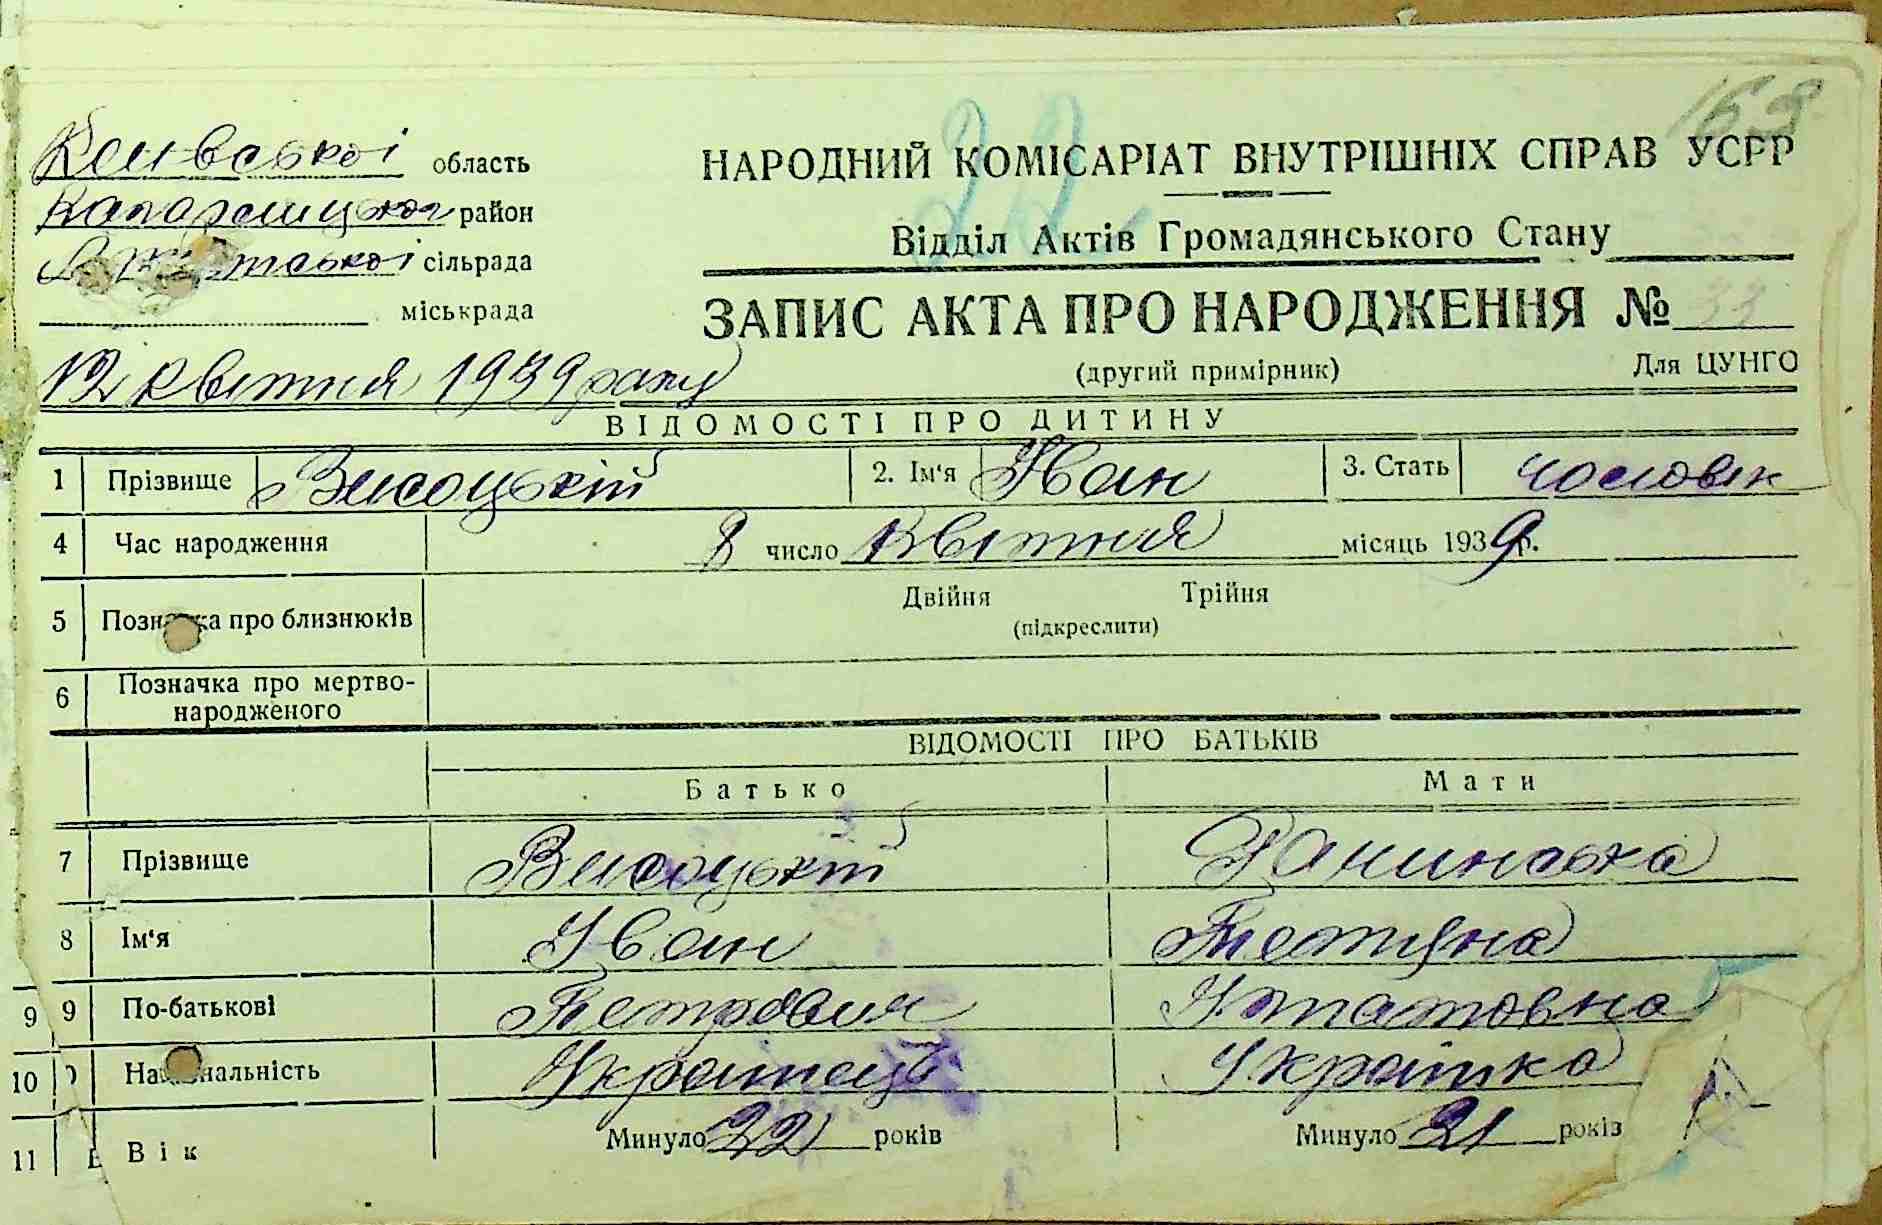 163
22
Київської область
НАРОДНИЙ КОМІСАРІАТ ВНУТРІШНІХ СПРАВ УСРР
район
Відділ Актів Громадянського Стану
сільрада
міськрада
ЗАПИС АКТА ПРО НАРОДЖЕННЯ № 33
(другий примірник) Для ЦУНГО
12 квітня 1939 року
ВІДОМОСТІ ПРО ДИТИНУ
1 Прізвище Висоцький 2. Ім'я Іван 3. Стать чоловік
4 Час народження 8 число квітня місяць 1939 р.
Двійня Трійня
5 Позначка про близнюків
(підкреслити)
6 Позначка про мертво-
народженого
ВІДОМОСТІ ПРО БАТЬКІВ
Батько Мати
7 Прізвище Висоцький Рачинська
8 Ім'я Іван Тетяна
9 9 По-батькові Петрович Ігнатовна
10 Національність Українець Українка
11 Вік Минуло років Минуло років